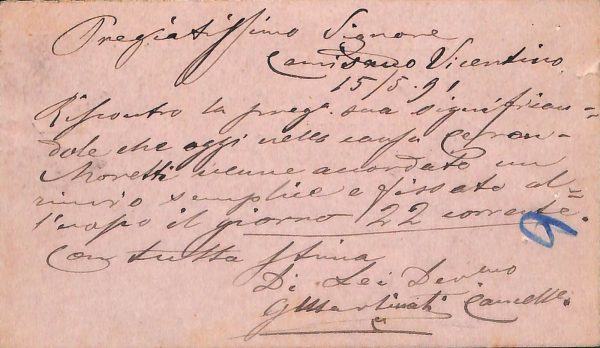 Pregiatissimo Signore
Camisano Vicentino
15/5.91
Riscontro la preg. sua significan=
dole che oggi nella causa
Moretti venne accordato un
rinvio semplice e fissato al=
l'uopo il giorno 22 corrente.
Con tutta stima
Di Lei Dev.mo
Cancell.
9